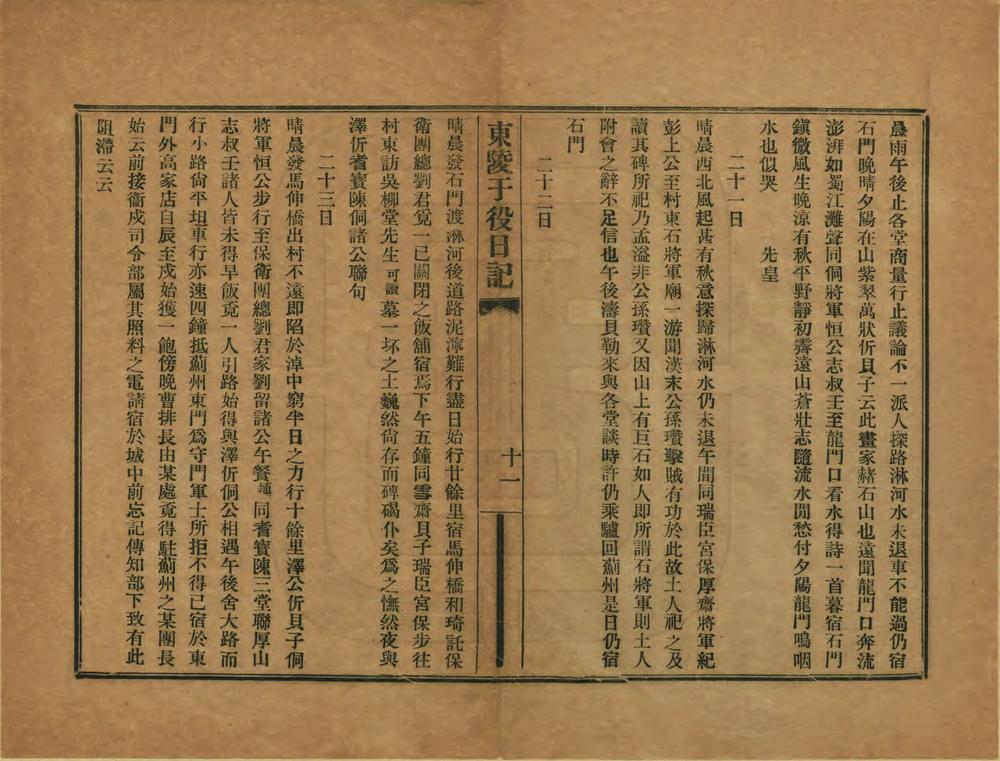 晨雨午後止各堂商量行止議論不一派人探路淋河水未退車不能過仍宿
石門晚晴夕陽在山紫翠萬狀伒貝子云此畫家赭石山也遠聞龍門口奔流
澎湃如蜀江灘聲同侗將軍恒公志叔壬至龍門口看水得詩一首暮宿石門
鎮微風生晚涼有秋平野靜初霽遠山蒼壯志隨流水閒愁付夕陽龍門鳴咽
水也似哭　先皇
二十一日
晴晨西北風起甚有秋意探歸淋河水仍未退午間同瑞臣宮保厚齋將軍紀
彭上公至村東石將軍廟一游聞漢末公孫瓚擊賊有功於此故土人祀之及
讀其碑所祀乃孟溢非公孫瓚又因山上有巨石如人即所謂石將軍則土人
附會之辭不足信也午後濤貝勒來與各堂談時許仍乘驢回薊州是日仍宿
石門
二十二日
東陵于役日記
十一
晴晨發石門渡淋河後道路泥濘難行盡日始行廿餘里宿馬伸橋和琦託保
衛團總劉君覓一已關閉之飯舖宿焉下午五鐘同雪齋貝子瑞臣宮保步往
村東訪吳柳堂先生可讀墓一坏之土巍然尙存而碑碣仆矣爲之憮然夜與
澤伒耆寶陳侗諸公聯句
二十三日
晴晨發馬伸橋出村不遠即陷於淖中窮半日之力行十餘里澤公伒貝子侗
將軍恒公步行至保衛團總劉君家劉留諸公午餐同耆寶陳三堂聯厚山
志叔壬諸人皆未得早飯覓一人引路始得與澤伒侗公相遇午後舍大路而
行小路尙平坦車行亦速四鐘抵薊州東門爲守門軍士所拒不得已宿於東
門外高家店自辰至戌始獲一飽傍晚曹排長由某處覓得駐薊州之某團長
始云前接衞戍司令部屬其照料之電請宿於城中前忘記傳知部下致有此
阻滯云云